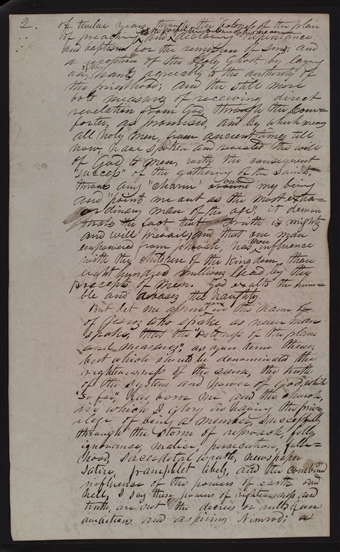 2.
of twelve years, through the boldness of the plan
of preaching and declaring repentance
and baptism for the remission of sins; and
a reception of the Holy Ghost by laying
on hands, agreeably to the authority of
the priesthood; and the still more
bold measure of receiving direct
revelation from God, through the Com-
forter, as promised, and by which means
all holy men, from ancient times till
now, have spoken and revealed the will
of God to men, with the consequent
"success" of the gathering of the Saints,
throws any "charm" around my being
and "point me out as the most extraor-
dinary man of the age", it demon-
strates the fact that truth is mighty
and will prevail; and that one man
empowered from Jehovah, has more influence
with the children of the Kingdom, than
eight hundred millions lead by the
precepts of men. God exalts the hum-
ble and debases the haughty.
But let me assure you in the name
of Jesus, who spake as never man
spake, that the "boldness of the plans
and measures," as you term them,
but which should be denominated the
righteousness of the cause, the truth
of the system and power of God, which
"so far," has borne me and the church,
in which I glory in having the privi-
lege of being a member, successfully
through the storm of reproach, folly,
ignorance, malice, persecution, false-
hood, sacerdotal wrath, newspaper
satire, pamphlet libels, and the combined
influence of the powers of earth and
hell, I say these powers of righteousness and
truth, are not the decrees or rules of an
ambitious and aspiring Nimrod; or